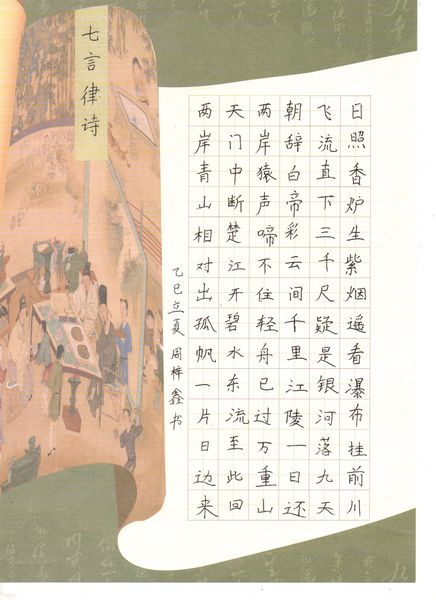 七言律诗
日照香炉生紫烟遥看瀑布挂前川
飞流直下三千尺疑是银河落九天
朝辞白帝彩云间千里江陵一日还
两岸猿声啼不住轻舟已过万重山
天门中断楚江开碧水东流至此回
两岸青山相对出孤帆一片日边来
乙巳立夏 周梓鑫书